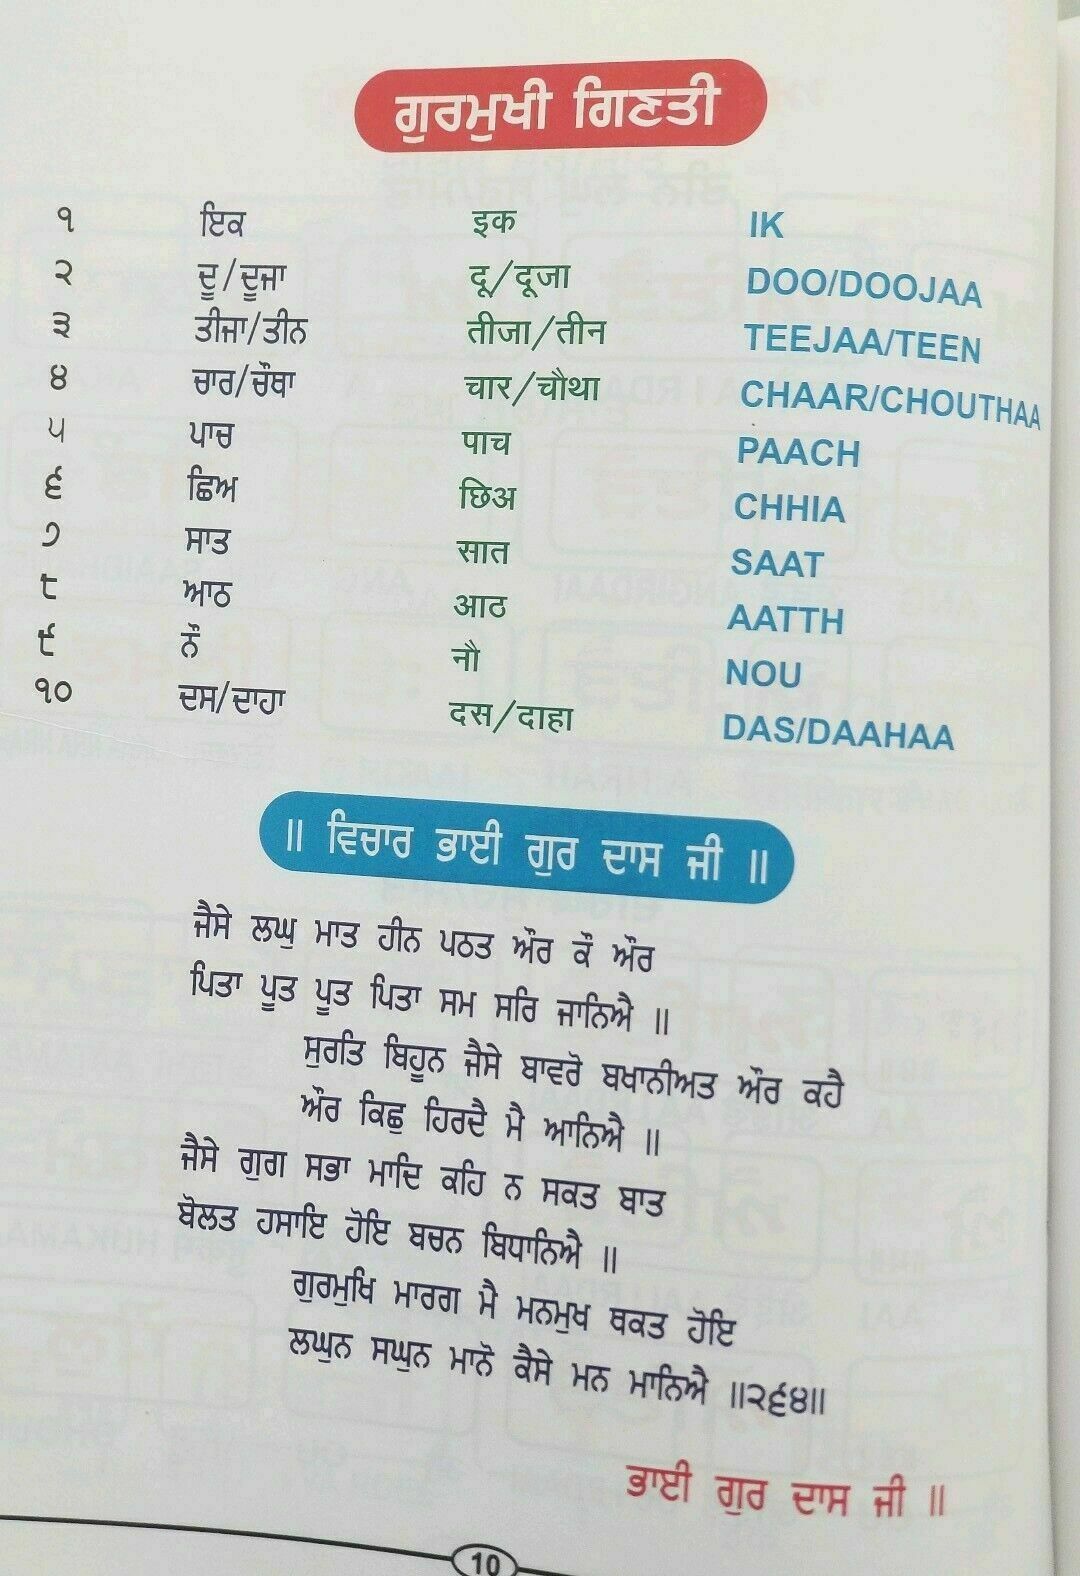 ਗੁਰਮੁਖੀ ਗਿਣਤੀ
੧ ਇਕ इक IK
੨ ਦੂ/ਦੂਜਾ दू/दूजा DOO/DOOJAA
੩ ਤੀਜਾ/ਤੀਨ तीजा/तीन TEEJAA/TEEN
੪ ਚਾਰ/ਚੌਥਾ चार/चौथा CHAAR/CHOUTHAA
੫ ਪਾਚ पाच PAACH
੬ ਛਿਅ छिअ CHHIA
੭ ਸਾਤ सात SAAT
੮ ਆਠ आठ AATTH
੯ ਨੌ नौ NOU
੧੦ ਦਸ/ਦਾਹਾ दस/दाहा DAS/DAAHAA
॥ ਵਿਚਾਰ ਭਾਈ ਗੁਰ ਦਾਸ ਜੀ ॥
ਜੈਸੇ ਲਘੁ ਮਾਤ ਹੀਨ ਪਠਤ ਔਰ ਕੌ ਔਰ
ਪਿਤਾ ਪੂਤ ਪੂਤ ਪਿਤਾ ਸਮ ਸਰਿ ਜਾਨਿਐ ॥
ਸੁਰਤਿ ਬਿਹੂਨ ਜੈਸੇ ਬਾਵਰੋ ਬਖਾਨੀਅਤ ਔਰ ਕਹੈ
ਔਰ ਕਿਛੁ ਹਿਰਦੈ ਮੈ ਆਨਿਐ ॥
ਜੈਸੇ ਗੁਗ ਸਭਾ ਮਾਦਿ ਕਹਿ ਨ ਸਕਤ ਬਾਤ
ਬੋਲਤ ਹਸਾਇ ਹੋਇ ਬਚਨ ਬਿਧਾਨਿਐ ॥
ਗੁਰਮੁਖਿ ਮਾਰਗ ਮੈ ਮਨਮੁਖ ਥਕਤ ਹੋਇ
ਲਘੁਨ ਸਘੁਨ ਮਾਨੋ ਕੈਸੇ ਮਨ ਮਾਨਿਐ ॥੨੬੪॥
ਭਾਈ ਗੁਰ ਦਾਸ ਜੀ ॥
10